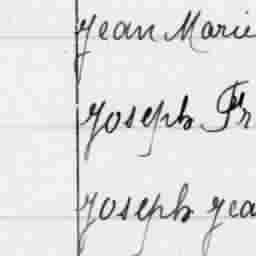 Jean Marie
Joseph Fr
Joseph Jea